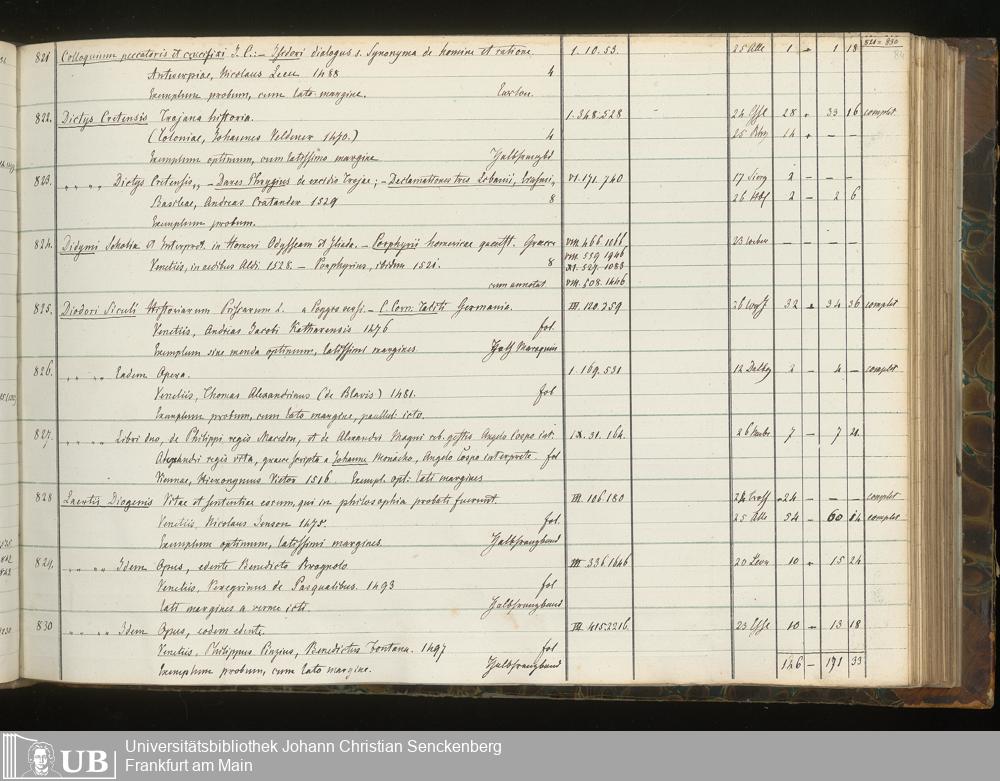 821 = 830
821 Colloquium peccatoris et crucifixi J. C. :– Isidori dialogus s. Synonyma de homine et ratione. 1. 10. 53. 25 1 – 1 18
Antverpiae, Nicolaus Leeu 1488 4
Exemplum probum, cum lato margine.
822. Dictys Cretensis Trojana historia. 1. 348. 528 24 28 – 33 16 complet
(Coloniae, Johannes Veldener 1470.) 4 25 14 – – –
Exemplum optimum, cum latissimo margine Halbfranzbd
823. „ „ „ Dictys Cretensis, – Dares Phrygius de excidio Trojae; – Declamationes tres Libanii, Erasmi, VI. 171. 740 17 2 – – –
Basileae, Andreas Cratander 1529 8 26 2 – 2 6
Exemplum probum.
824. Didymi Scholia et Interpret. in Homeri Odysseam et Iliada. – Porphyrii homericae quaest. Graece VIII. 466. 1066 23 Weber – – – –
Venetiis, in aedibus Aldi 1528. – Porphyrius, ibidem 1521. 8 VIII. 539. 1946
XI. 529. 1083
cum annotat VIII. 508. 1446
825. Diodori Siculi Historiarum Priscarum L. a Poggio vers. – C. Corn. Taciti Germania. III. 120. 259 26 32 – 34 36 complet
Venetiis, Andreas Jacobi Katharensis 1476 fol.
Exemplum sine menda optimum, latissimi margines Halb Maroquin
826. „ „ „ Eadem Opera. 1. 169. 531 12 2 – 4 – complet
Venetiis, Thomas Alexandrinus (de Blavis) 1481. fol
Exemplum probum, cum lato margine, icto.
827. „ „ „ Libri duo, de Philippi regis Macedon, et de Alexandri Magni reb. gestis Angelo Cospo int. IX. 31. 164. 26 7 – 7 21.
Alexandri regis vita, graece scripta a Johanne Monacho, Angelo Cospo interprete. fol
Viennae, Hieronymus Vietor 1516. Exempl. opt: lati margines
828 Laertis Diogenis Vitae et sententiae eorum, qui in philosophia probati fuerunt III. 106. 180 24 – – complet
Venetiis, Nicolaus Jenson 1475. fol. 25 54 – 60 84 complet
Exemplum optimum, latissimi margines. Halbfranzband
829. „ „ „ Idem Opus, edente Benedicto Brognolo III 336. 1646 20 10 – 15 24
Venetiis, Peregrinus de Pasqualibus. 1493 fol
lati margines a verme icti. Halbfranzband
830 „ „ „ Idem Opus, eodem edente. III. 415. 3216. 23 10 – 13 18
Venetiis, Philippus Pinzius, Benedictus Fontana. 1497 fol
Exemplum probum, cum lato margine. Halbfranzband 146 – 171 33
UB
Universitätsbibliothek Johann Christian Senckenberg
Frankfurt am Main